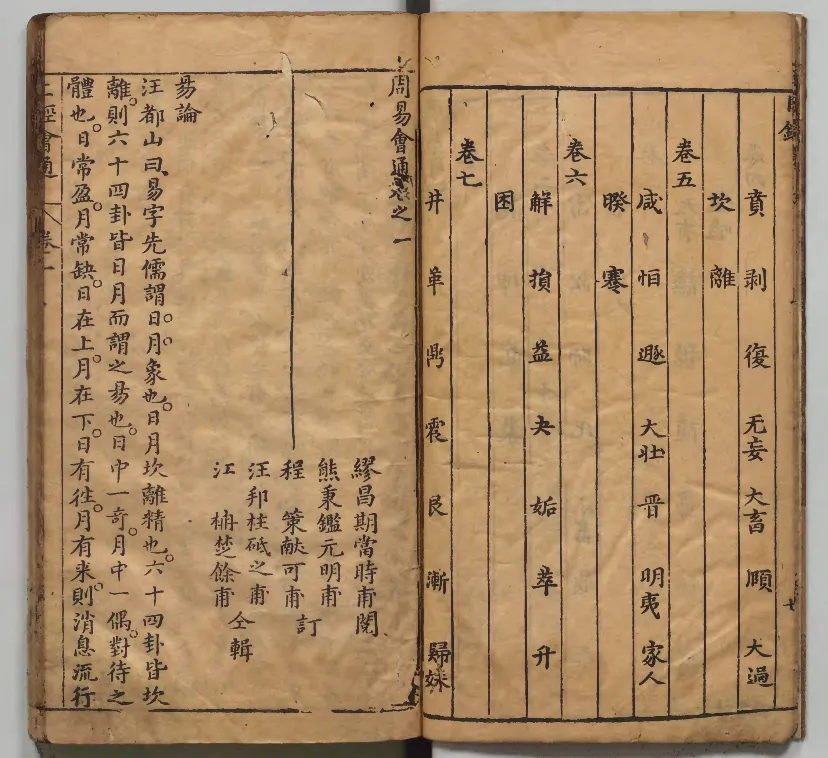 目錄
賁 剥 復 无妄 大畜 頤 大過
坎 離
卷五
咸 恒 遯 大壯 晉 明夷 家人
睽 蹇
卷六
解 損 益 夬 姤 萃 升
困
卷七
井 革 鼎 震 艮 漸 歸妹
周易會通卷之一
繆昌期當時甫閱
熊秉鑑元明甫
程策献可甫 訂
汪邦柱砥之甫
江柟楚餘甫 仝輯
易論
汪都山曰易字先儒謂日月象也日月坎離精也六十四卦皆坎
離則六十四卦皆日月而謂之易也日中一奇月中一偶對待之
體也日常盈月常缺日在上月在下日有往月有来則消息流行